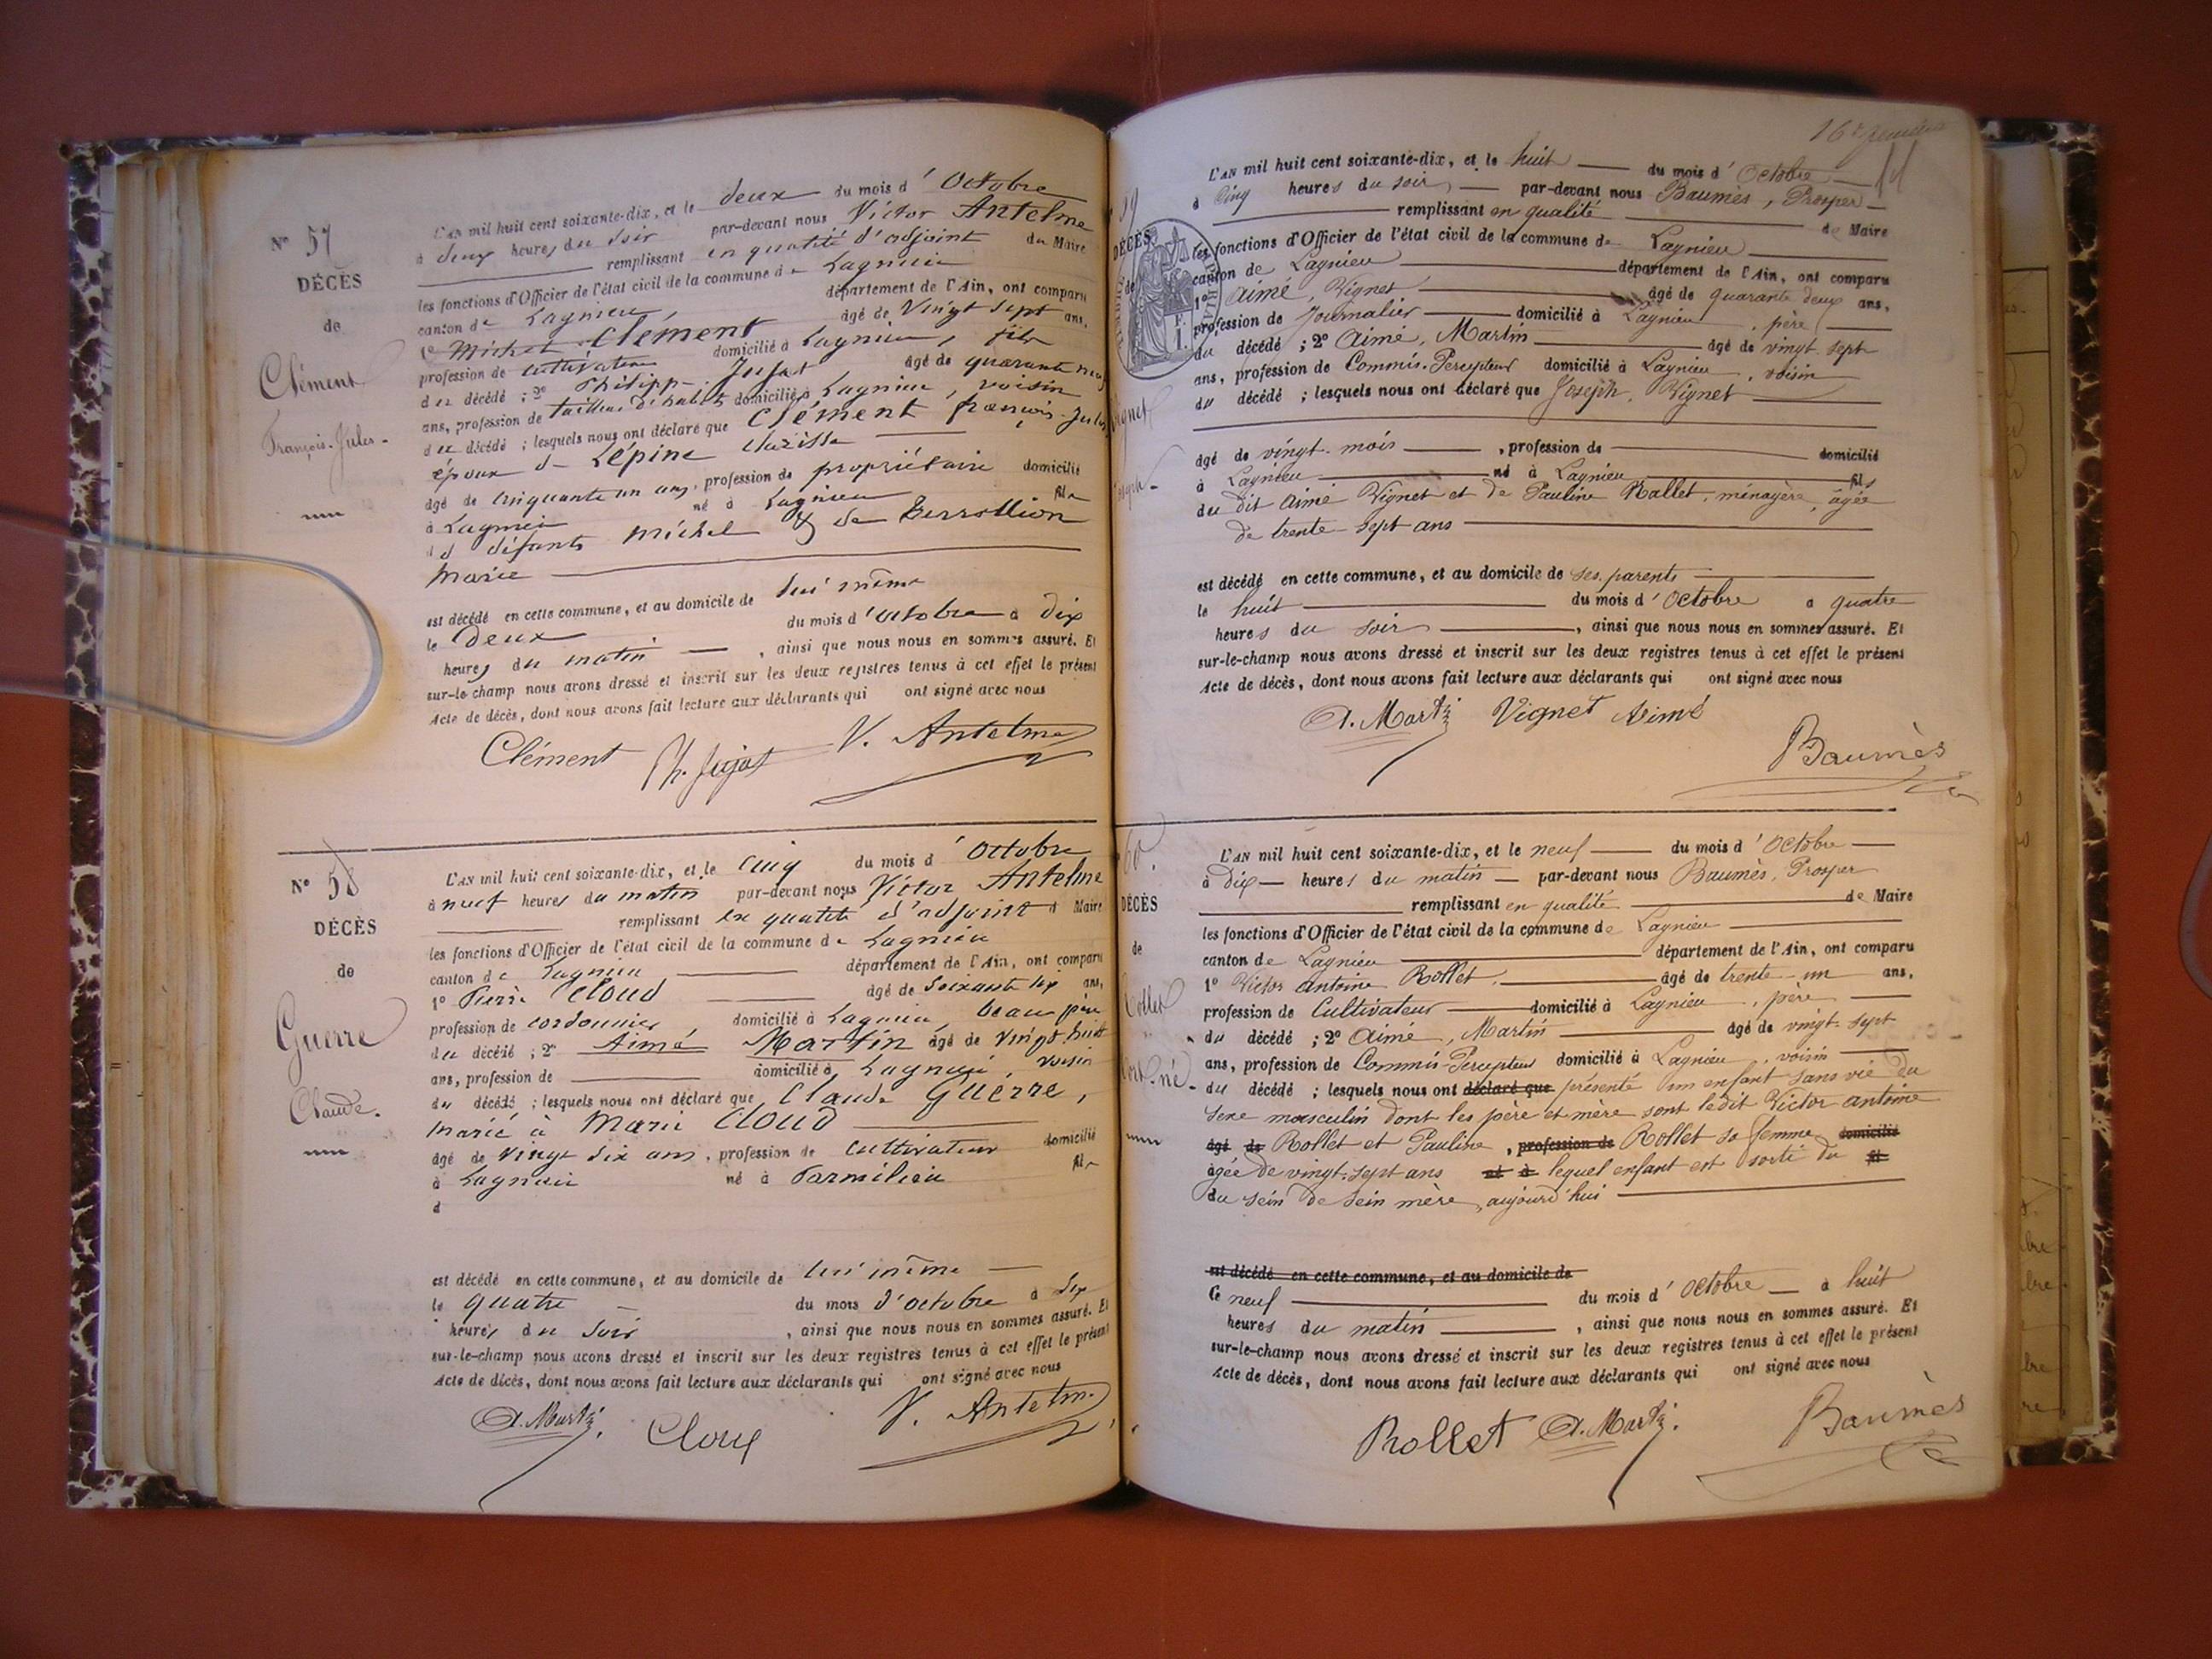 N° 57
DÉCÈS
de
Clément
François-Jules-
L'AN mil huit cent soixante-dix, et le deux du mois d'Octobre
à deux heures du soir par-devant nous Victor Antelme
remplissant en qualité d'adjoint du Maire
les fonctions d'Officier de l'état civil de la commune de Lagnieu
canton de Lagnieu, département de l'Ain, ont comparu
1° Michel Clément âgé de Vingt sept ans,
profession de cultivateur domicilié à Lagnieu, fils
du décédé ; 2° Philippe Jujat âgé de quarante neuf
ans, profession de tailleur d'habits domicilié à Lagnieu, voisin
du décédé ; lesquels nous ont déclaré que Clément françois-Jules
époux de Lépine
âgé de cinquante un ans, profession de propriétaire domicilié
à Lagnieu né à Lagnieu fils
des défunts Michel & de
Marie
est décédé en cette commune, et au domicile de lui même
le Deux du mois d'octobre à dix
heures du matin, ainsi que nous nous en sommes assuré. Et
sur-le-champ nous avons dressé et inscrit sur les deux registres tenus à cet effet le présent
Acte de décès, dont nous avons fait lecture aux déclarants qui ont signé avec nous
Clément Ph. Jujat V. Antelme
N° 58
DÉCÈS
de
Guerre
Claude.
L'AN mil huit cent soixante-dix, et le cinq du mois d'Octobre
à neuf heures du matin par-devant nous Victor Antelme
remplissant en qualité d'adjoint d Maire
les fonctions d'Officier de l'état civil de la commune de Lagnieu
canton de Lagnieu département de l'Ain, ont comparu
1° Pierre Cloud âgé de soixante six ans,
profession de cordonnier domicilié à Lagnieu, beau père
du décédé ; 2° Aimé Martin âgé de vingt huit
ans, profession de domicilié à Lagnieu, voisin
du décédé ; lesquels nous ont déclaré que Claude Guerre,
marié à Marie Cloud
âgé de Vingt six ans, profession de cultivateur domicilié
à Lagnieu né à Parmilieu fils
d
est décédé en cette commune, et au domicile de lui même
le quatre du mois d'octobre à six
heures du soir, ainsi que nous nous en sommes assuré. Et
sur-le-champ nous avons dressé et inscrit sur les deux registres tenus à cet effet le présent
Acte de décès, dont nous avons fait lecture aux déclarants qui ont signé avec nous
A. Martin. V. Antelme
59
DÉCÈS
de
Vignet
Joseph-
L'AN mil huit cent soixante-dix, et le huit du mois d'Octobre
à Cinq heures du soir, par-devant nous Baumès, Prosper
remplissant en qualité de Maire
les fonctions d'Officier de l'état civil de la commune de Lagnieu
canton de Lagnieu département de l'Ain, ont comparu
1° Aimé, Vignet âgé de quarante deux ans,
profession de Journalier domicilié à Lagnieu, père
du décédé ; 2° Aimé, Martin âgé de vingt sept
ans, profession de Commis-Percepteur domicilié à Lagnieu, voisin
du décédé ; lesquels nous ont déclaré que Joseph, Vignet
âgé de vingt-mois, profession de domicilié
à Lagnieu né à Lagnieu fils
du dit Aimé Vignet et de Pauline Rallet, ménagère, âgée
de trente sept ans
est décédé en cette commune, et au domicile de ses parents
le huit du mois d'Octobre à quatre
heures du soir, ainsi que nous nous en sommes assuré. Et
sur-le-champ nous avons dressé et inscrit sur les deux registres tenus à cet effet le présent
Acte de décès, dont nous avons fait lecture aux déclarants qui ont signé avec nous
A. Martin Vignet Aimé
Baumès
60.
DÉCÈS
de
Rollet
Mort-né-
L'AN mil huit cent soixante-dix, et le neuf du mois d'Octobre
à dix heures du matin par-devant nous Baumès, Prosper
remplissant en qualité de Maire
les fonctions d'Officier de l'état civil de la commune de Lagnieu
canton de Lagnieu département de l'Ain, ont comparu
1° Victor Antoine Rollet, âgé de trente-un ans,
profession de Cultivateur domicilié à Lagnieu, père
du décédé ; 2° Aimé, Martin âgé de vingt-sept
ans, profession de Commis-Percepteur domicilié à Lagnieu, voisin
du décédé ; lesquels nous ont déclaré que présenté un enfant sans vie du
sexe masculin dont les père et mère sont ledit Victor antoine
âgé de Rollet et Pauline, profession de Rollet sa femme domicilié
âgée de vingt-sept ans né à lequel enfant est sorti du fil
du sein de sein mère, aujourd'hui
est décédé en cette commune, et au domicile de
le neuf du mois d'Octobre à huit
heures du matin, ainsi que nous nous en sommes assuré. Et
sur-le-champ nous avons dressé et inscrit sur les deux registres tenus à cet effet le présent
Acte de décès, dont nous avons fait lecture aux déclarants qui ont signé avec nous
Rollet A. Martin. Baumès